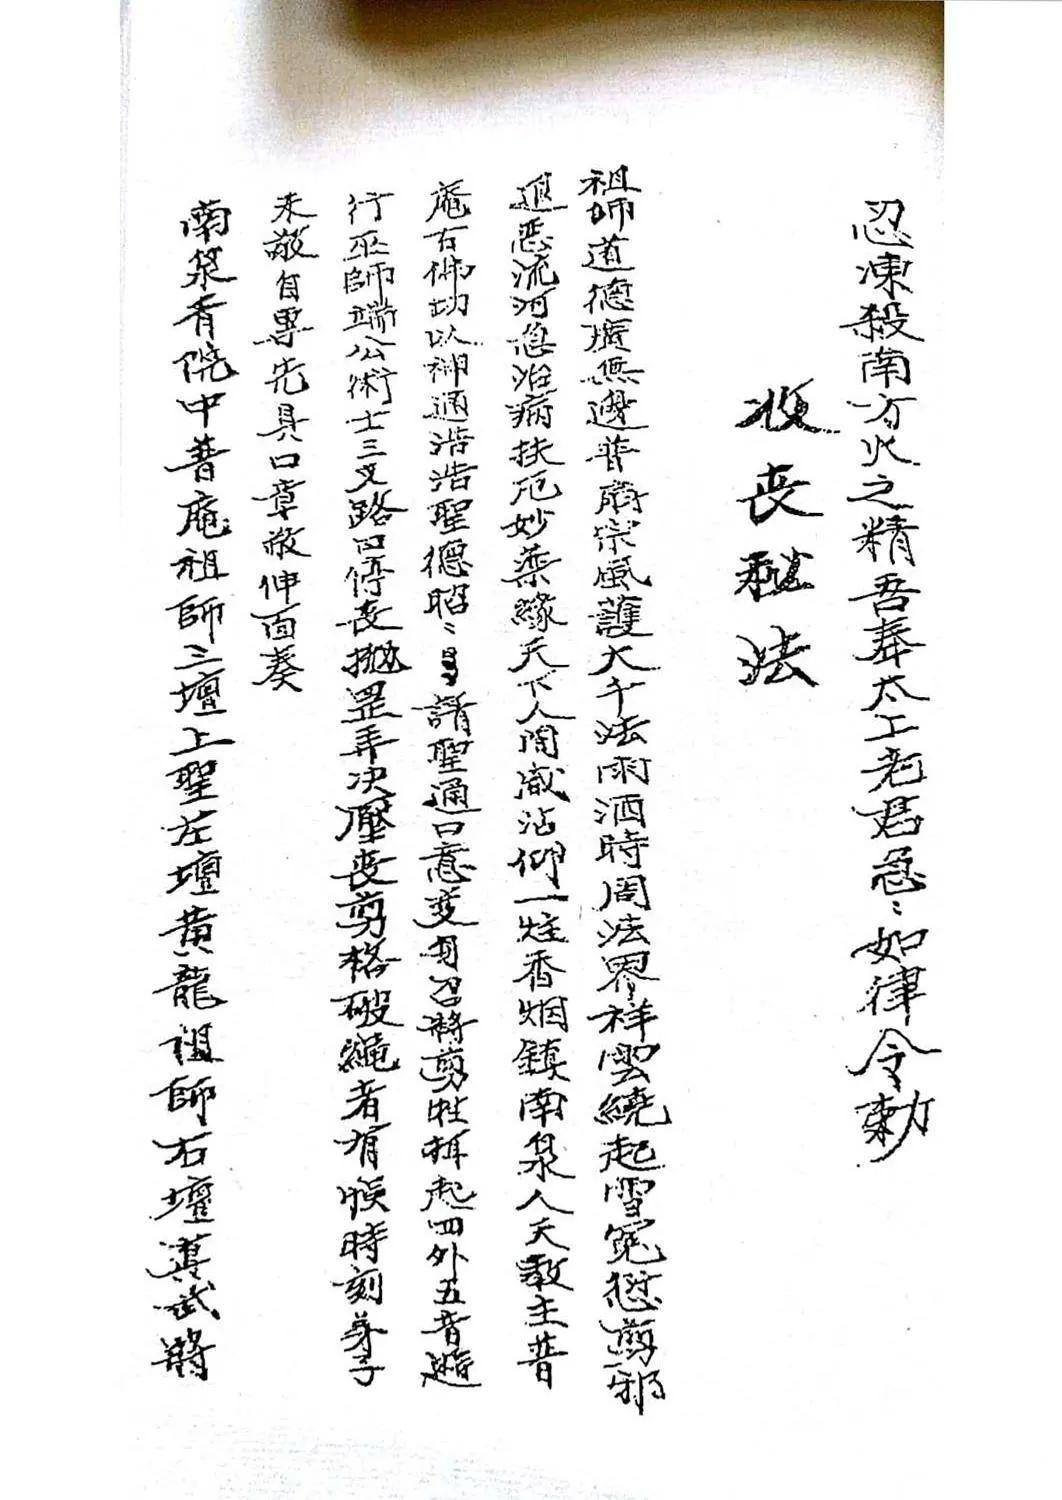 忍凍殺南方火之精吾奉太上老君急〻如律令勅
收喪秘法
祖師道德廣無邊普庵宗風護大千法雨洒時周法界祥雲繞起雪冤愆剪邪
退惡流河息治病扶厄妙葯緣天下人間咸沾仰一炷香烟鎮南泉人天教主普
庵古佛切以神通浩浩聖德昭〻請聖通口意变身召將剪牲押起四外五音遊
行巫師端公術士三叉路口停喪抛罡弄决壓喪剪格破繩者有候時刻弟子
未敢自專先具口章敬伸面奏
南泉香院中普庵祖師三壇上聖左壇黄龍祖師右壇真武將